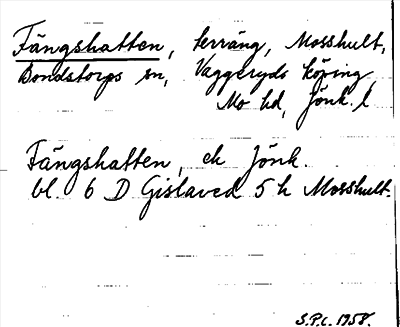 Fängshatten, terräng, Mosshult,
Bondstorps sn, Vaggeryds köping
Mo hd, Jönk. l
Fängshatten, ek Jönk.
bl. 6 D Gislaved 5 h Mosshult.
S.P.C. 1958.